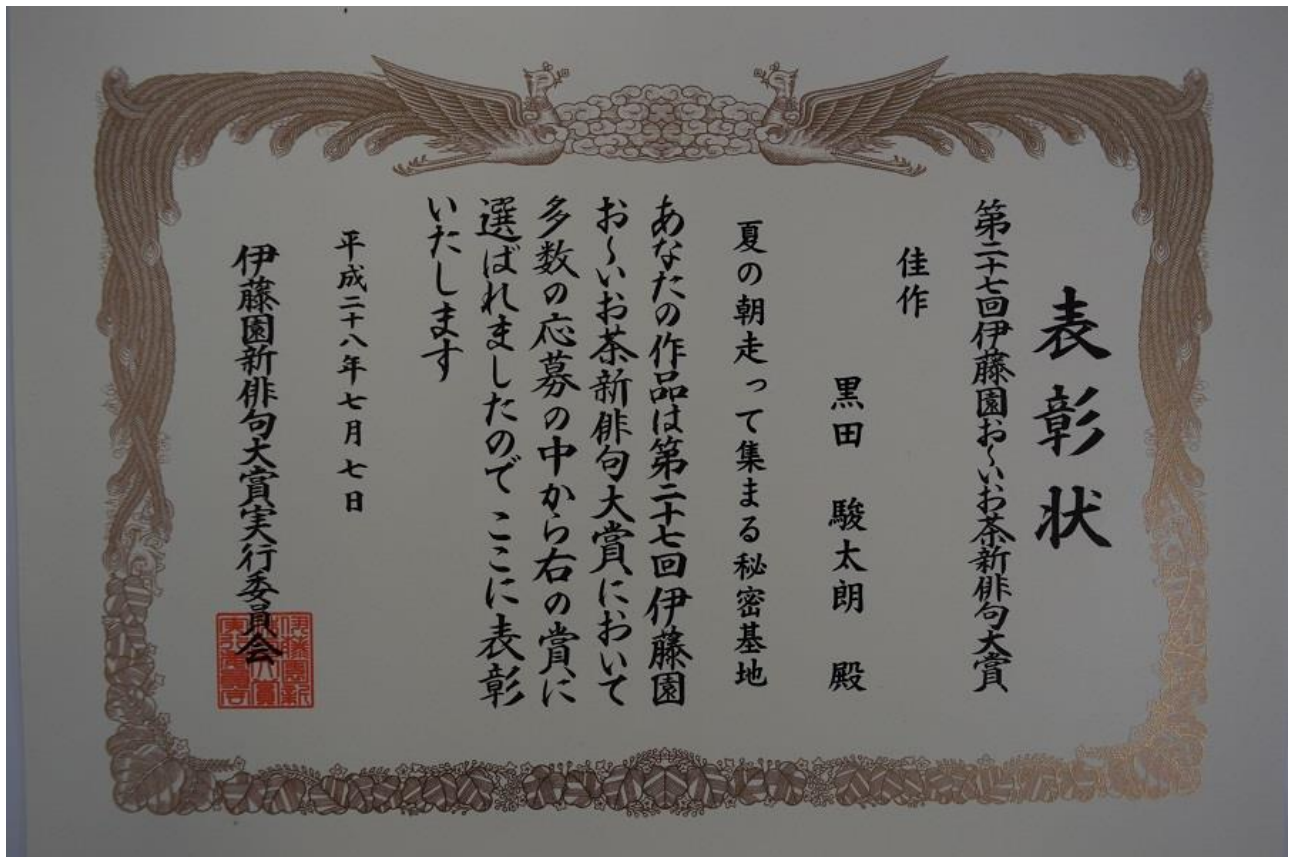 表彰状
第二十七回伊藤園お〜いお茶新俳句大賞
佳作
黒田 駿太朗 殿
夏の朝走って集まる秘密基地
あなたの作品は第二十七回伊藤園
お〜いお茶新俳句大賞において
多数の応募の中から右の賞に
選ばれましたのでここに表彰
いたします
平成二十八年七月七日
伊藤園新俳句大賞実行委員会